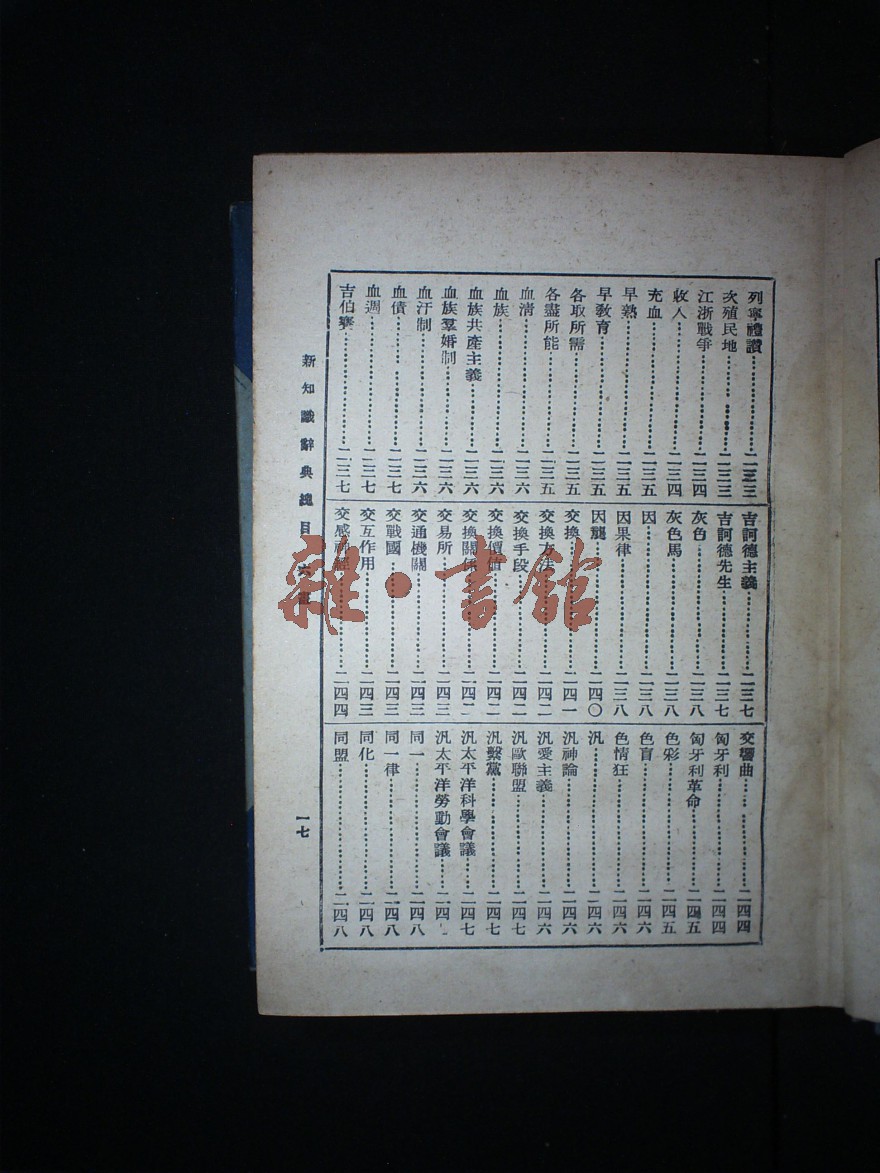 列寧禮讚……二三三
次殖民地……二三三
江浙戰爭……二三四
收入……二三四
充血……二三五
早熟……二三五
早敎育……二三五
各取所需……二三五
各盡所能……二三五
血清……二三六
血族……二三六
血族共產主義……二三六
血族羣婚制……二三六
血汗制……二三六
血債……二三七
血週……二三七
吉伯……二三七
吉訶德主義……二三七
吉訶德先生……二三七
灰色……二三八
灰色馬……二三八
因……二三八
因果律……二三八
因襲……二四〇
交換……二四一
交換方法……二四二
交換手段……二四二
交換價値……二四二
交換關係……二四二
交易所……二四三
交通機關……二四三
交戰國……二四三
交互作用……二四三
交感神經……二四四
交響曲……二四四
匈牙利……二四四
匈牙利革命……二四五
色彩……二四五
色盲……二四六
色情狂……二四六
汎……二四六
汎神論……二四六
汎愛主義……二四六
汎歐聯盟……二四七
汎繫黨……二四七
汎太平洋科學會議……二四七
汎太平洋勞動會議……二四
同一……二四八
同一律……二四八
同化……二四八
同盟……二四八
新知識辭典總目 六畫
一七
雜·書館